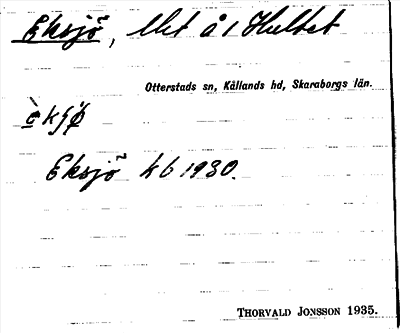 Eksjö, Utt å i Hultet
Otterstads sn, Kållands hd, Skaraborgs län.
Eksjö kb 1930.
THORVALD JONSSON 1935.